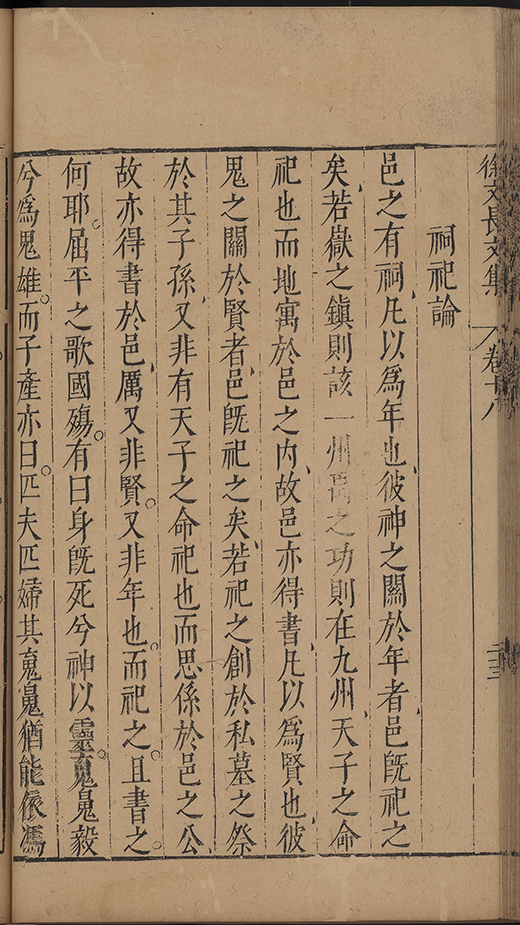 徐文長文集 卷十八 三
祠祀論
邑之有祠凡以爲年也彼神之關於年者邑旣祀之
矣若嶽之鎮則該一州禹之功則在九州天子之命
祀也而地寓於邑之内故邑亦得書凡以爲賢也彼
鬼之關於賢者邑旣祀之矣若祀之創於私墓之祭
於其子孫又非有天子之命祀也而思係於邑之公
故亦得書於邑厲又非賢又非年也而祀之且書之
何耶屈平之歌國殤有曰身旣死兮神以靈䰟鬼毅
兮爲鬼雄而子產亦曰匹夫匹婦其䰟鬼猶能依馮